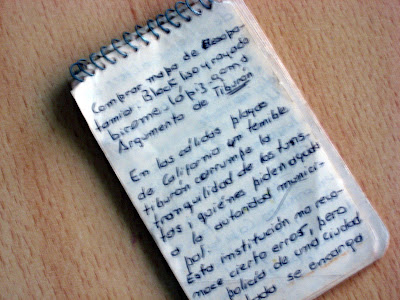 Comprar mapa de
tamia. Block liso y rayado
birome, lápiz, goma
Argumento de Tiburón
En las cálidas playas
de California un temible
tiburón corrumpe la
tranquilidad de los turis-
tas, quiénes piden ayuda
a la autoridad munici-
pal.
Esta institución no reco-
noce cierto error, pero
policía de una ciudad
se encarga